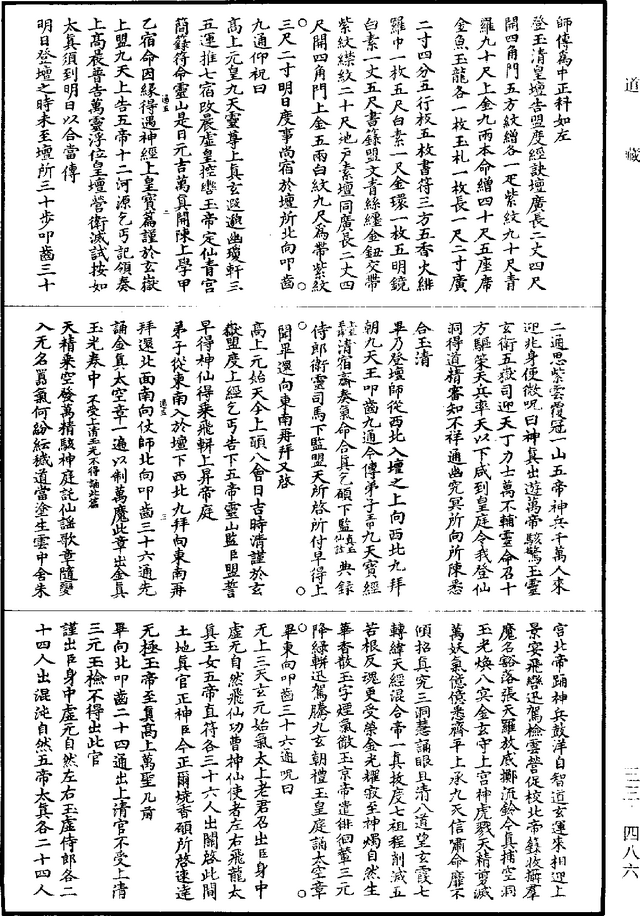 道藏
師傳爲中正科如左
登玉清皇壇告盟度經訣壇廣長二丈四尺
開四角門五方紋繒各一疋紫紋九十尺青
羅九十尺上金九兩本命繒四十尺五座席
金魚玉龍各一枚玉札一枚長一尺二寸廣
二寸四分五行板五枚書符三方五香火緋
羅巾一枚五尺白素一尺金環一枚五明鏡
白素一丈五尺書籙盟文青絲纏金鈕交帶
紫紋緤紋二十尺池戶素壇同廣長二丈四
尺開四角門上金五兩白紋九尺爲帶紫紋
三尺二寸明日度事尚宿於壇所北向叩齒
九通仰祝曰
高上元皇九天靈尊上真玄遐邈幽瓊軒三
五運推七宿改晨虛皇控轡玉帝定仙青宮
簡籙符命靈山是日元吉萬真開陳上學甲
乙宿命因緣得遇神經上皇寶篇謹於玄嶽
上盟九天上告五帝十二河源乞丐記領奏
上高晨普告萬靈浮位皇壇營衛滅試按如
太真須到明日以合當傳
明日登壇之時未至壇所三十步叩齒三十
二通思紫雲覆冠一山五帝神兵千萬人來
迎兆身便微呪曰神真出遊萬帝駭驚玉靈
玄衛五嶽司迎天丁力士萬不輔靈命召十
方驅策天兵率天以下咸到皇庭令我登仙
洞得道精審知不祥通幽究冥所向所陳悉
合玉清
畢乃登壇師從西北入壇之上向西北九拜
朝九天王叩齒九通今傳弟子王甲九天寶經
清宿齋奏氣命合真乞碩下監典錄
侍郎衛靈司馬下監盟天所啓所付早得上
聞畢還向東南再拜又啓
高上元始天今上碩八會日吉時清謹於玄
嶽盟度上經乞丐告下五帝靈山監臣盟誓
早得神仙得乘飛軿上昇帝庭
弟子從東南入於壇下西北九拜向東南再
拜還北西南向伏師北向叩齒三十六通先
誦金真太空章一遍以制萬魔此章出金真
玉光奉中不受上清玉光不得誦此篇
天精乘空發萬精駭神庭託仙謠歌章隨變
入无名嚚氣何紛紜搣道當塗生雲中舍朱
宮北帝踊神兵鼓洋自智道玄運來相迎上
景宴飛轡迅駕檢雲營促校北帝籙收攝群
魔名豁落張天羅放威擲流鈴令真捕空洞
玉光煥八冥金玄守上宮神虎戮天精剪滅
萬妖氣億億悉齊平上承九天信肅命靡不
傾招真究三洞慧誦眼且清八道望玄霞七
轉緯天經混合帝一真拔度七祖程削滅五
苦根反魂更受榮金光耀寂至神燭自然生
華香散玉字煙氣徹玉京帝遣徘徊輦三元
降綠軿迅駕騰九玄朝禮玉皇庭誦太空章
畢東向叩齒三十六通呪曰
无上三天玄元始氣太上老君召出臣身中
虛无自然飛仙功曹神仙使者左右飛龍太
真玉女五帝直符各三十六人出關啓此間
土地真官正神臣今正爾燒香碩所啓速達
无極玉帝至真高上萬聖几前
畢向北叩齒二十四通出上清官不受上清
三元玉檢不得出此官
謹出臣身中虛元自然左右玉虛侍郎各二
十四人出混沌自然五帝太真各二十四人
三三·四八六